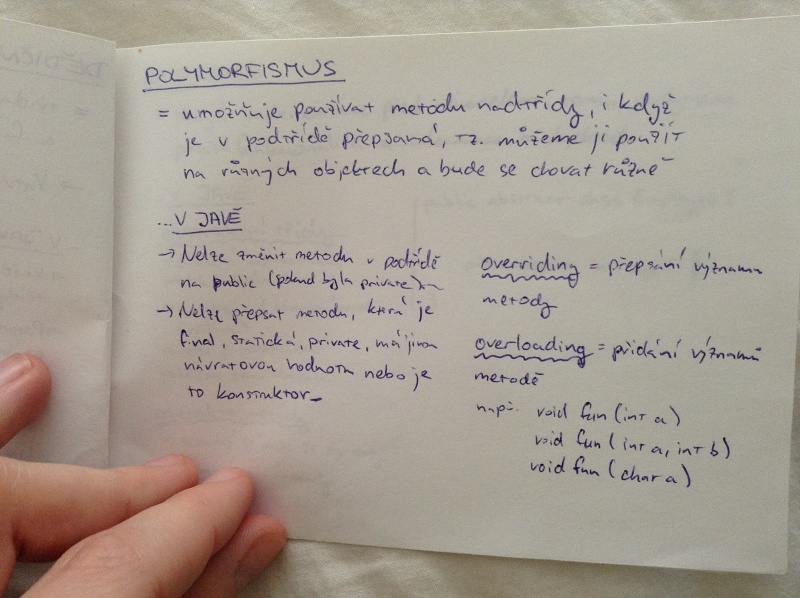 POLYMORFISMUS
= umožňuje používat metodu nadtřídy, i když
je v podtřídě přepsaná, tz. můžeme ji použít
na různých objektech a bude se chovat různě
...V JAVĚ
→ Nelze změnit metodu v podtřídě
na public (pokud byla private)
→ Nelze přepsat metodu, která je
final, statická, private, má jinou
návratovou hodnotu nebo je
to konstruktor
overriding = přepsání významu
metody
overloading = přidání významů
metodě
např. void fun (int a)
void fun (int a, int b)
void fun (char a)